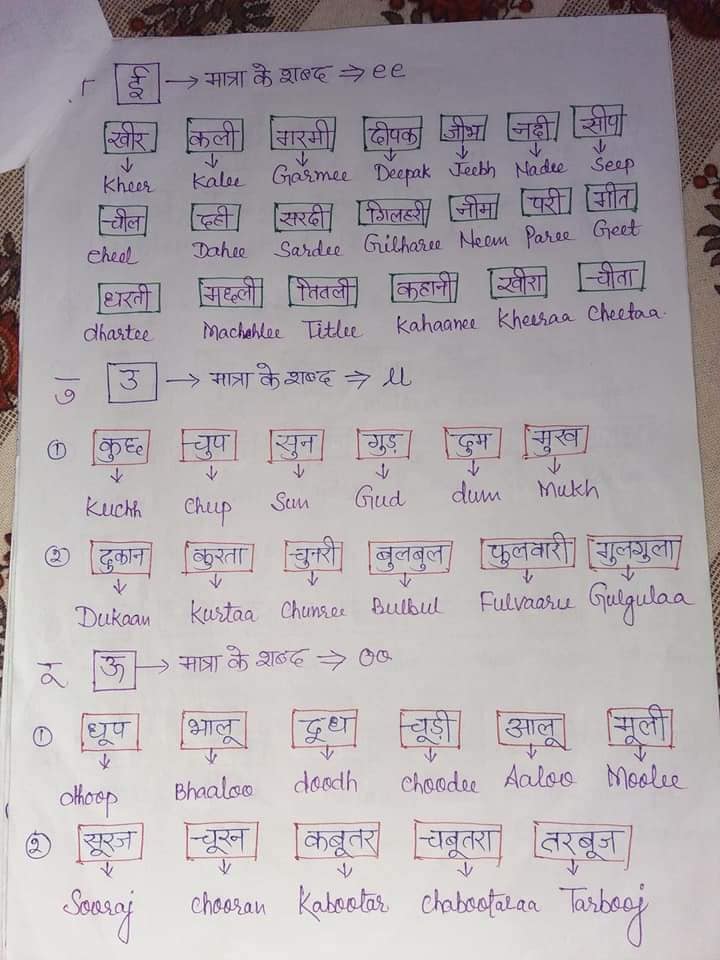 ी ई → मात्रा के शब्द ⇒ ee
खीर कली गरमी दीपक जीभ नदी सीप
Kheer Kalee Garmee Deepak Jeebh Nadee Seep
चील दही सरदी गिलहरी नीम परी गीत
cheel Dahee Sardee Gilharee Neem Paree Geet
धरती मछली तितली कहानी खीरा चीता
dhartee Machchlee Titlee Kahaanee Kheeraa Cheetaa
ु उ → मात्रा के शब्द ⇒ u
① कुछ चुप सुन गुड़ दुम मुख
Kuchh Chup Sun Gud dum Mukh
② दुकान कुरता चुनरी बुलबुल फुलवारी गुलगुला
Dukaan Kurtaa Chunree Bulbul Fulvaaree Gulgulaa
ू ऊ → मात्रा के शब्द ⇒ oo
① धूप भालू दूध चूड़ी आलू मूली
dhoop Bhaaloo doodh choodee Aaloo Moolee
② सूरज चूरन कबूतर चबूतरा तरबूज
Sooraj chooran Kabootar chabootaraa Tarbooj